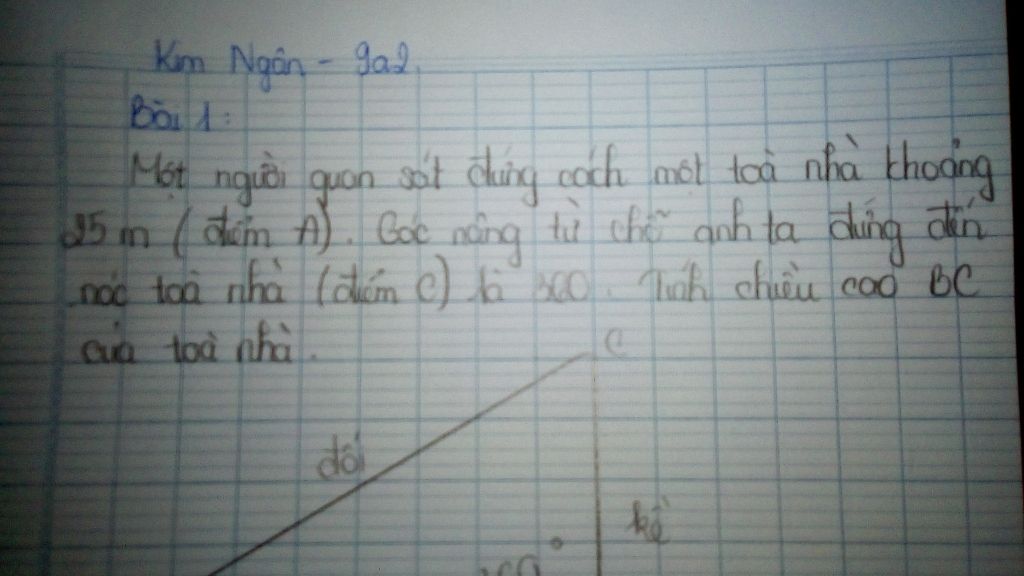 Kim Ngân - 9a2.
Bài 1:
Một người quan sát đứng cách một toà nhà khoảng
25 m (điểm A). Góc nâng từ chỗ anh ta đứng đến
nóc toà nhà (điểm C) là 360. Tính chiều cao BC
của toà nhà.
C
đối
kề